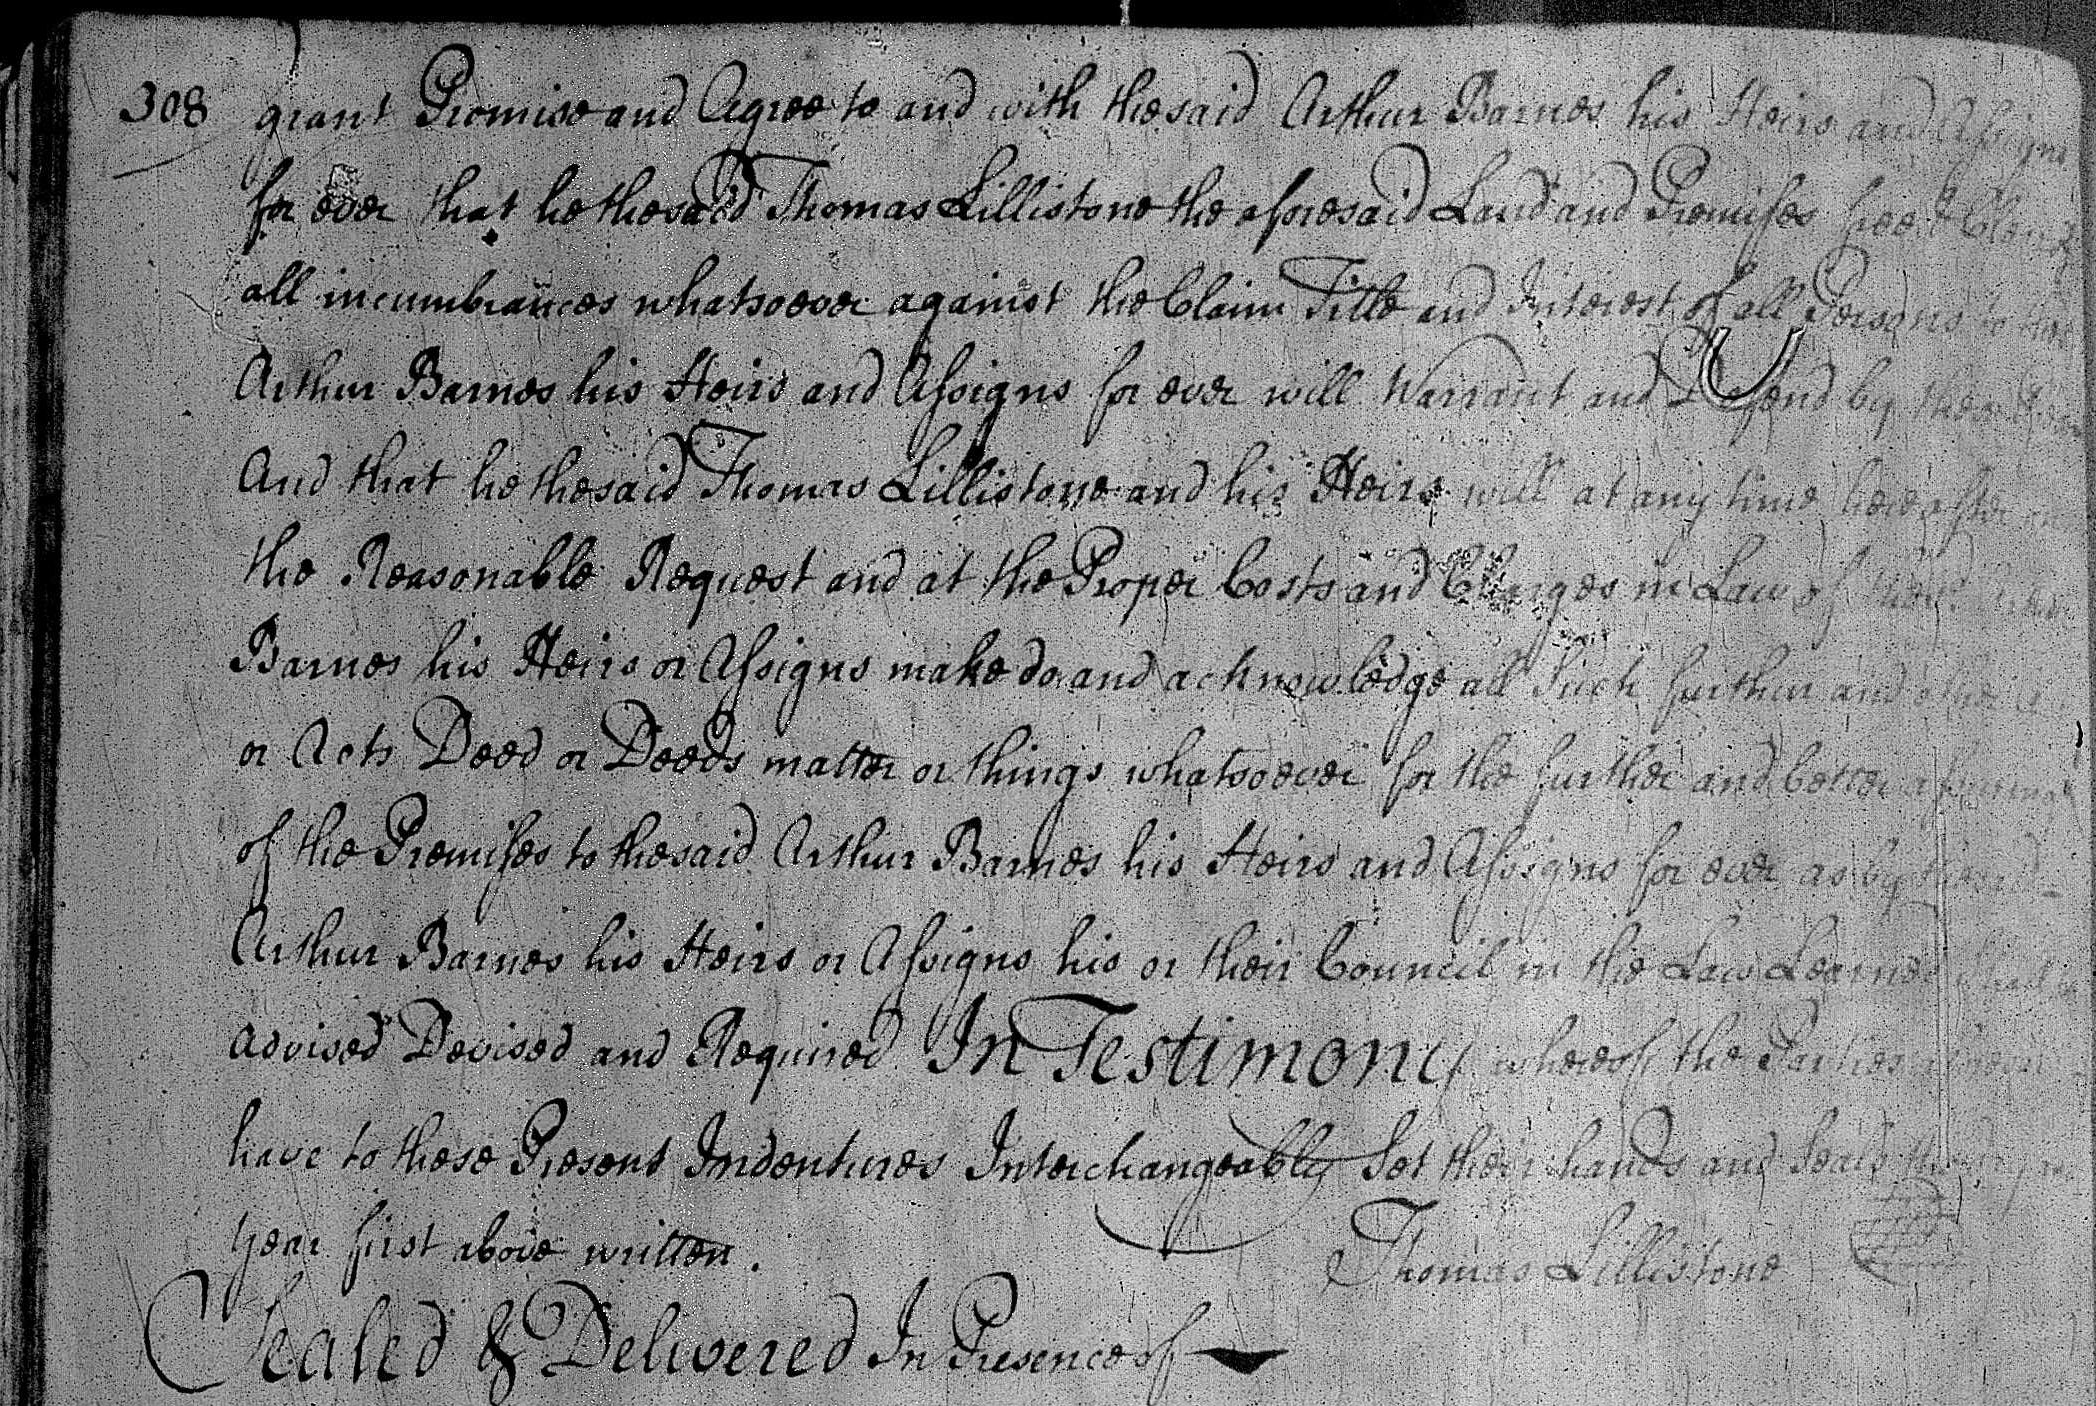 308 grant Promise and Agree to and with the said Arthur Barnes his Heirs and Assigns
for ever that he the said Thomas Lillistone the aforesaid Land and Premises free & Clear
all incumbrances whatsoever against the Claim Title and Interest of all Persons to the
Arthur Barnes his Heirs and Assigns for ever will Warrant and Defend by these
And that he the said Thomas Lillistone and his Heirs will at any time hereafter
the Reasonable Request and at the Proper Costs and Charges in Law of
Barnes his Heirs or Assigns make do and acknowledge all Such further and other
or Acts Deed or Deeds matter or things whatsoever for the further and better
of the Premises to the said Arthur Barnes his Heirs and Assigns for ever as by
Arthur Barnes his Heirs or Assigns his or their Council in the Law Learned
advised Devised and Required In Testimony whereof the Parties
have to these Present Indentures Interchangeably Set their hands and Seals
year first above written.
Thomas Lillistone
Sealed & Delivered In Presence of